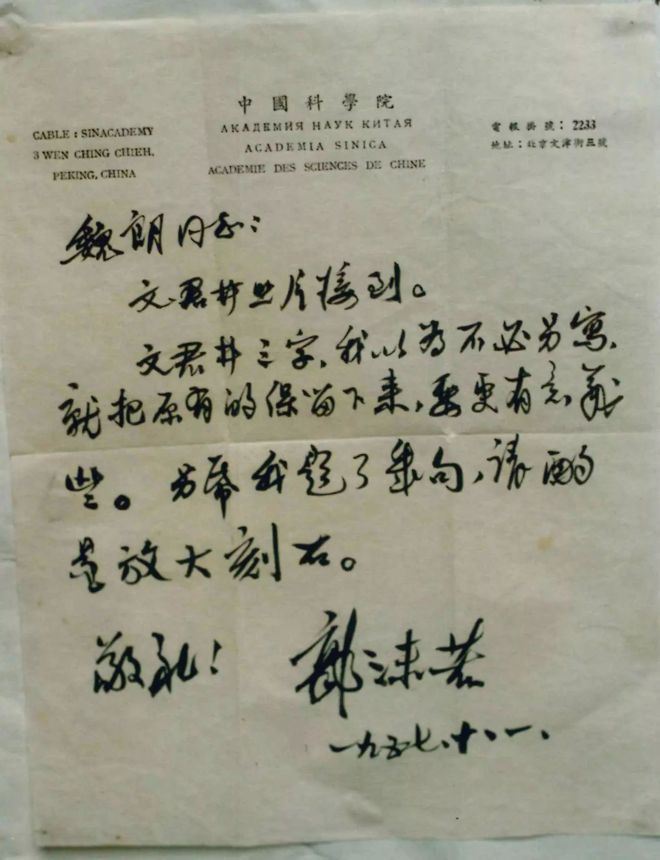 中國科學院
АКАДЕМИЯ НАУК КИТАЯ
ACADEMIA SINICA
ACADEMIE DES SCIENCES DE CHINE
CABLE : SINACADEMY
3 WEN CHING CHIEH,
PEKING, CHINA
電報掛號：2233
地址：北京文津街三號
魏朗同志：
文君井照片接到。
文君井三字，我以为不必另寫，
就把原有的保留下来，要更有意義
些。另帋我题了幾句，请酌
量放大刻石。
敬礼！
郭沫若
一九五七、十、一、